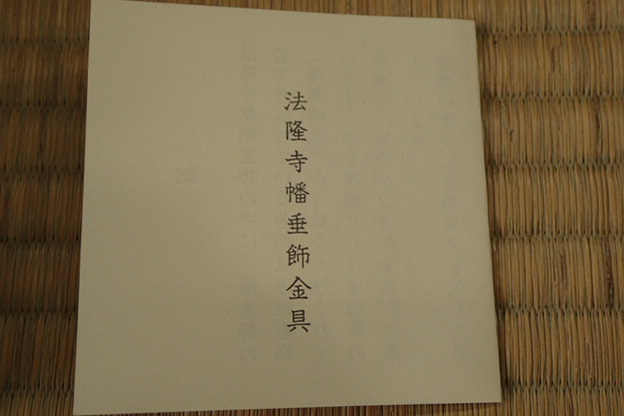 法隆寺幡垂飾金具